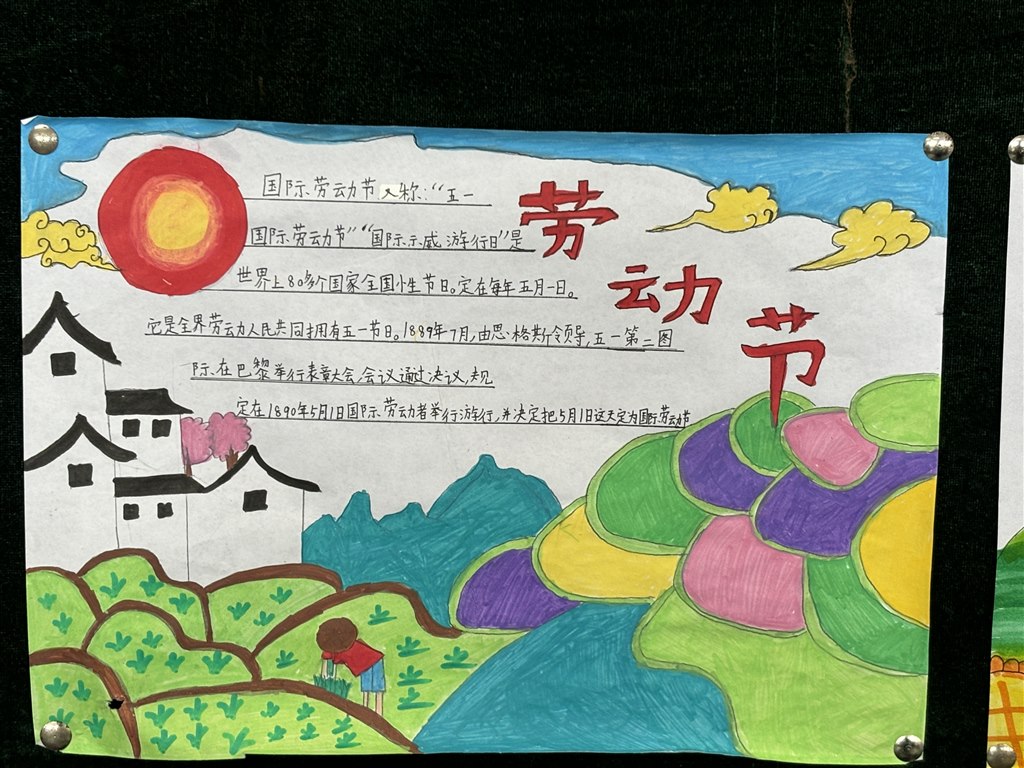 国际劳动节又称:“五一
国际劳动节”“国际示威游行日”是
世界上80多个国家全国性节日。定在每年五月一日。
它是全界劳动人民共同拥有五一节日。1889年7月,由恩格斯领导,五一第二图
际在巴黎举行表章大会,会议通过决议,规
定在1890年5月1日国际劳动者举行游行,并决定把5月1日这天定为国际劳动节
劳
动
节